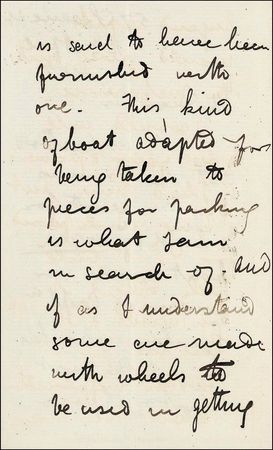 is said to have been
furnished with
one. This kind
of boat adapted for
being taken to
pieces for packing
is what I am
in search of. and
if as I understand
some are made
with wheels to
be used in getting